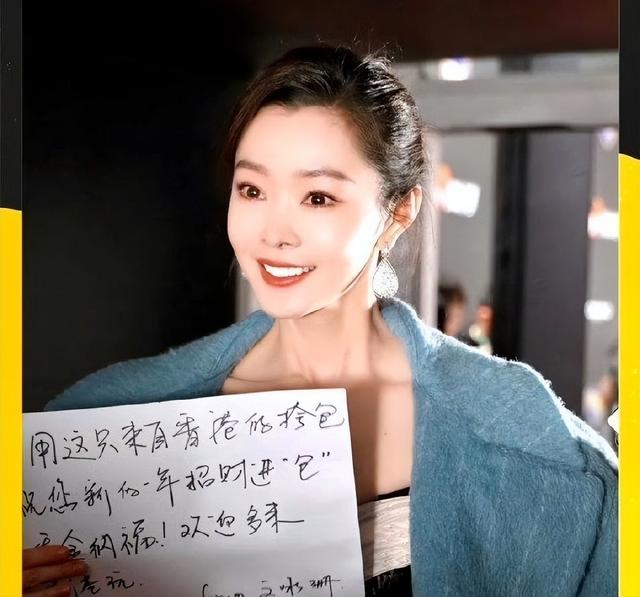 用这只来自香港的挎包
祝您新的一年招财进"包"
金纳福！欢迎多来
港玩. 咏珊